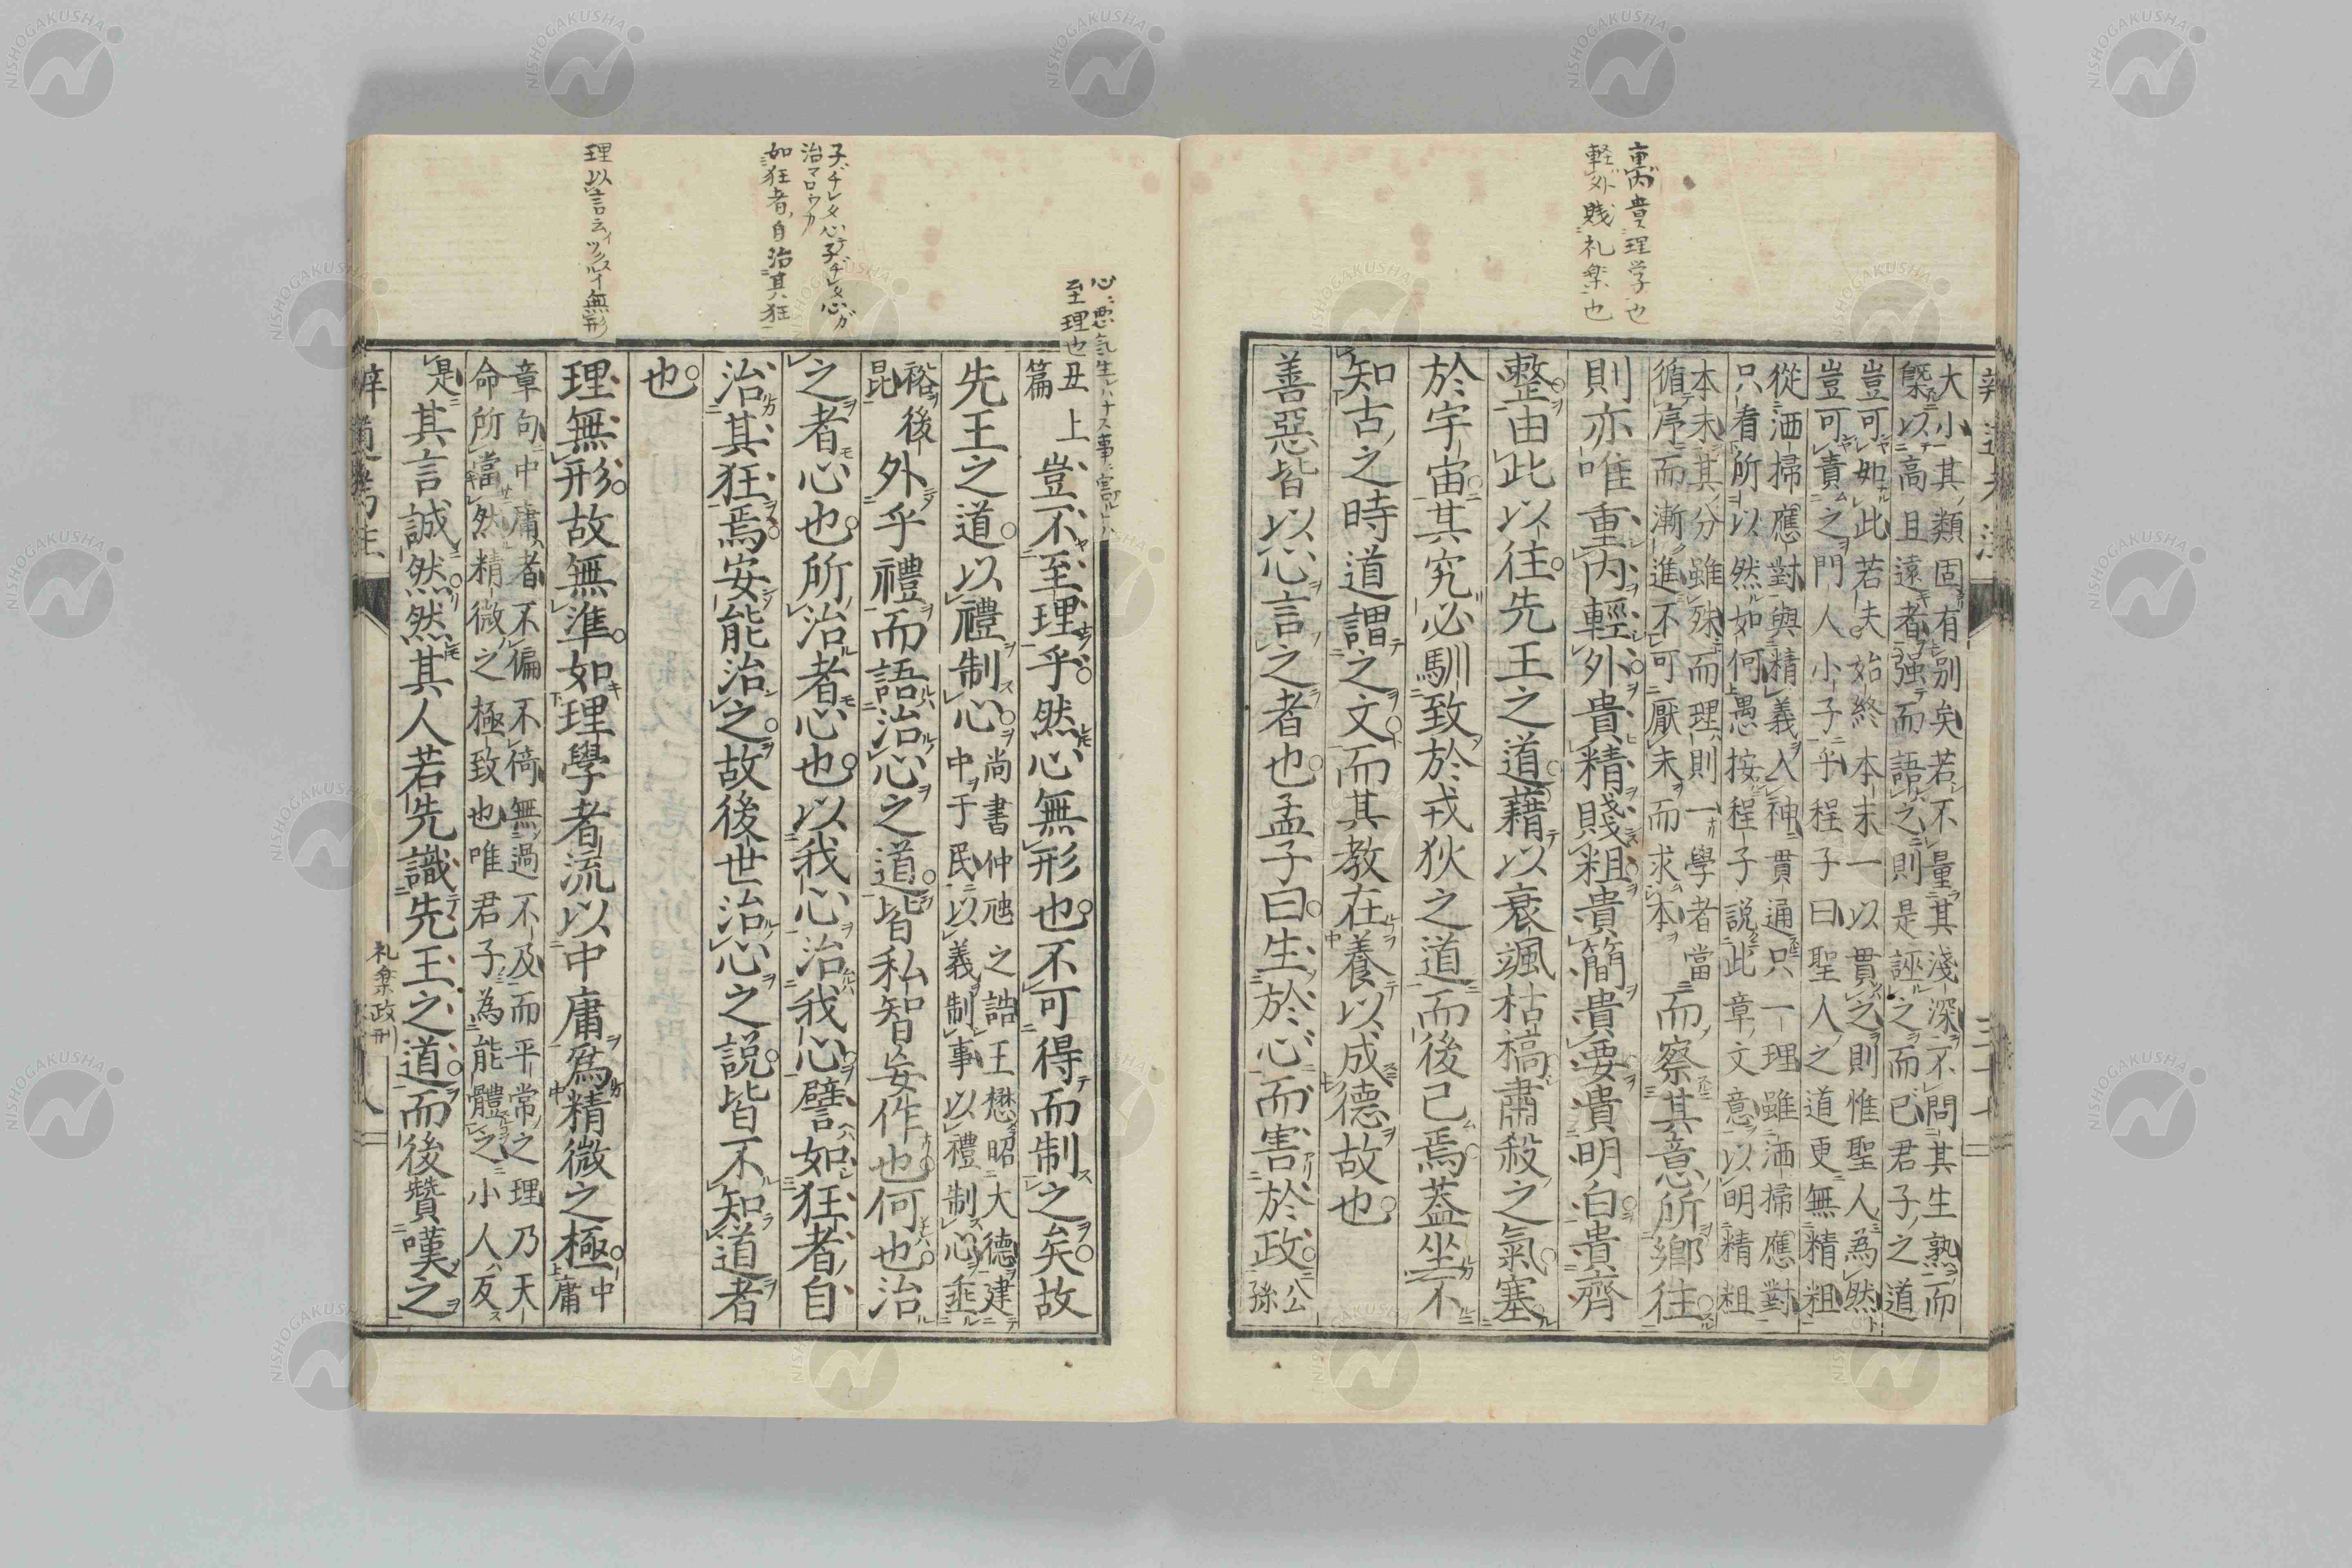 重内貴理学也
軽外賎礼楽也
大小其類固有別矣若不量其淺深不問其生熟而
槩以高且遠者强而語之則是誣之而已君子之道
豈可如此若夫始終本末一以貫之則惟聖人為然
豈可責之門人小子乎程子曰聖人之道更無精粗
從洒掃應對與精義入神貫通只一理雖洒掃應對
只看所以然如何愚按程子說此章文意以明精粗
本末其分雖殊而理則一學者當
循序而漸進不可厭末而求本
而察其意所郷往
則亦唯重内輕外貴精賤粗貴簡貴要貴明白貴齊
整由此以往先王之道藉以衰颯枯槁肅殺之氣塞
於宇宙其究必馴致於戎狄之道而後已焉蓋坐不
知古之時道謂之文而其教在養以成德故也
善惡皆以心言之者也孟子曰生於心而害於政
公孫
心
至理也
丑上
篇
豈不至理乎然心無形也不可得而制之矣故
先王之道以禮制心
尚書仲虺之誥王懋昭大德建
中于民以義制事以禮制心垂
裕後
昆
外乎禮而語治心之道皆私智妄作也何也治
之者心也所治者心也以我心治我心譬如狂者自
治其狂焉安能治之故後世治心之說皆不知道者
也
如狂者自治其狂
理無形故無準如理學者流以中庸爲精微之極
中
庸
章句中庸者不偏不倚無過不及而平常之理乃天
命所當然精微之極致也唯君子為能體之小人反
是
其言誠然然其人若先識先王之道而後贊嘆之
礼樂政刑